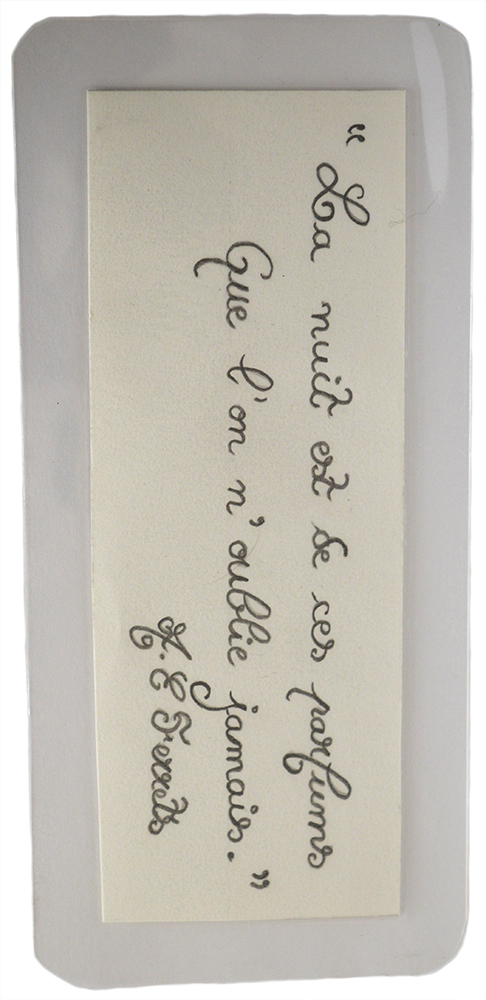 “ La nuit est de ces parfums
Que l'on n'oublie jamais. ”